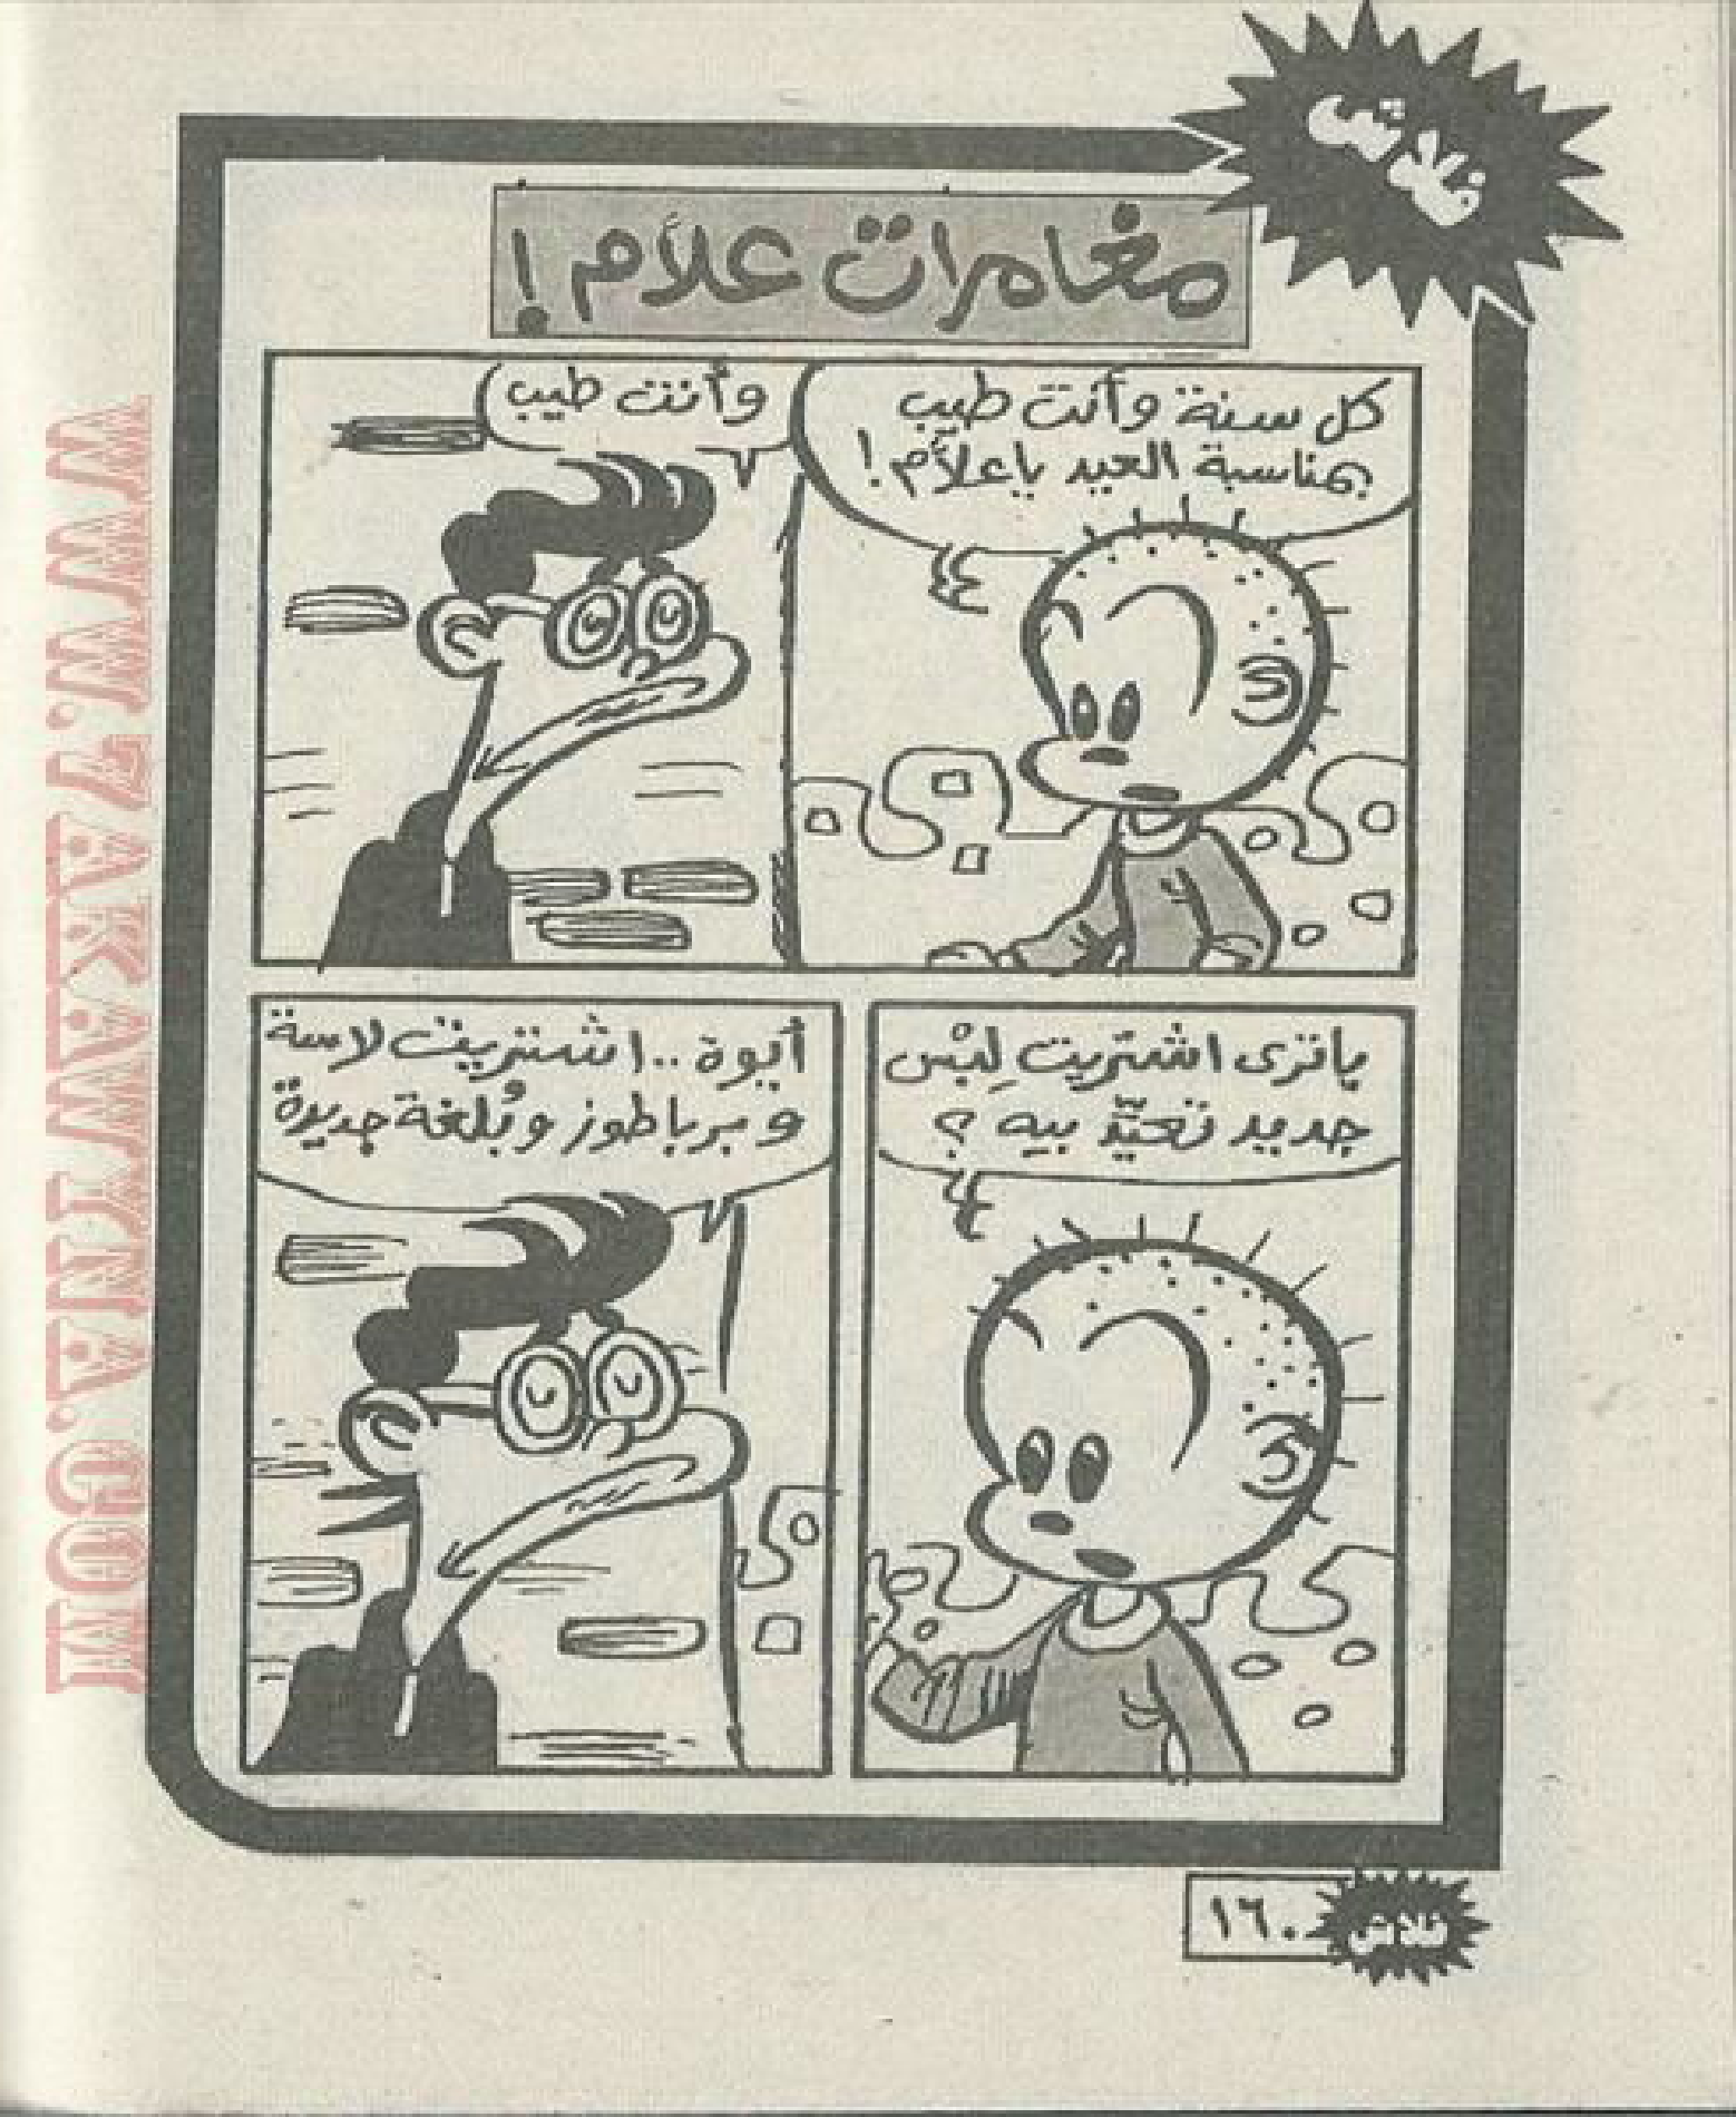 فلاش
مغامرات علام !
كل سنة وأنت طيب
بمناسبة العيد ياعلام !
وأنت طيب
ياترى اشتريت لِبْس
جديد تعيّد بيه ؟
أيوة .. اشتريت لاسة
وبرباطوز وبُلغة جديدة
فلاش
١٦٠
WWW.7AKAWINA.COM